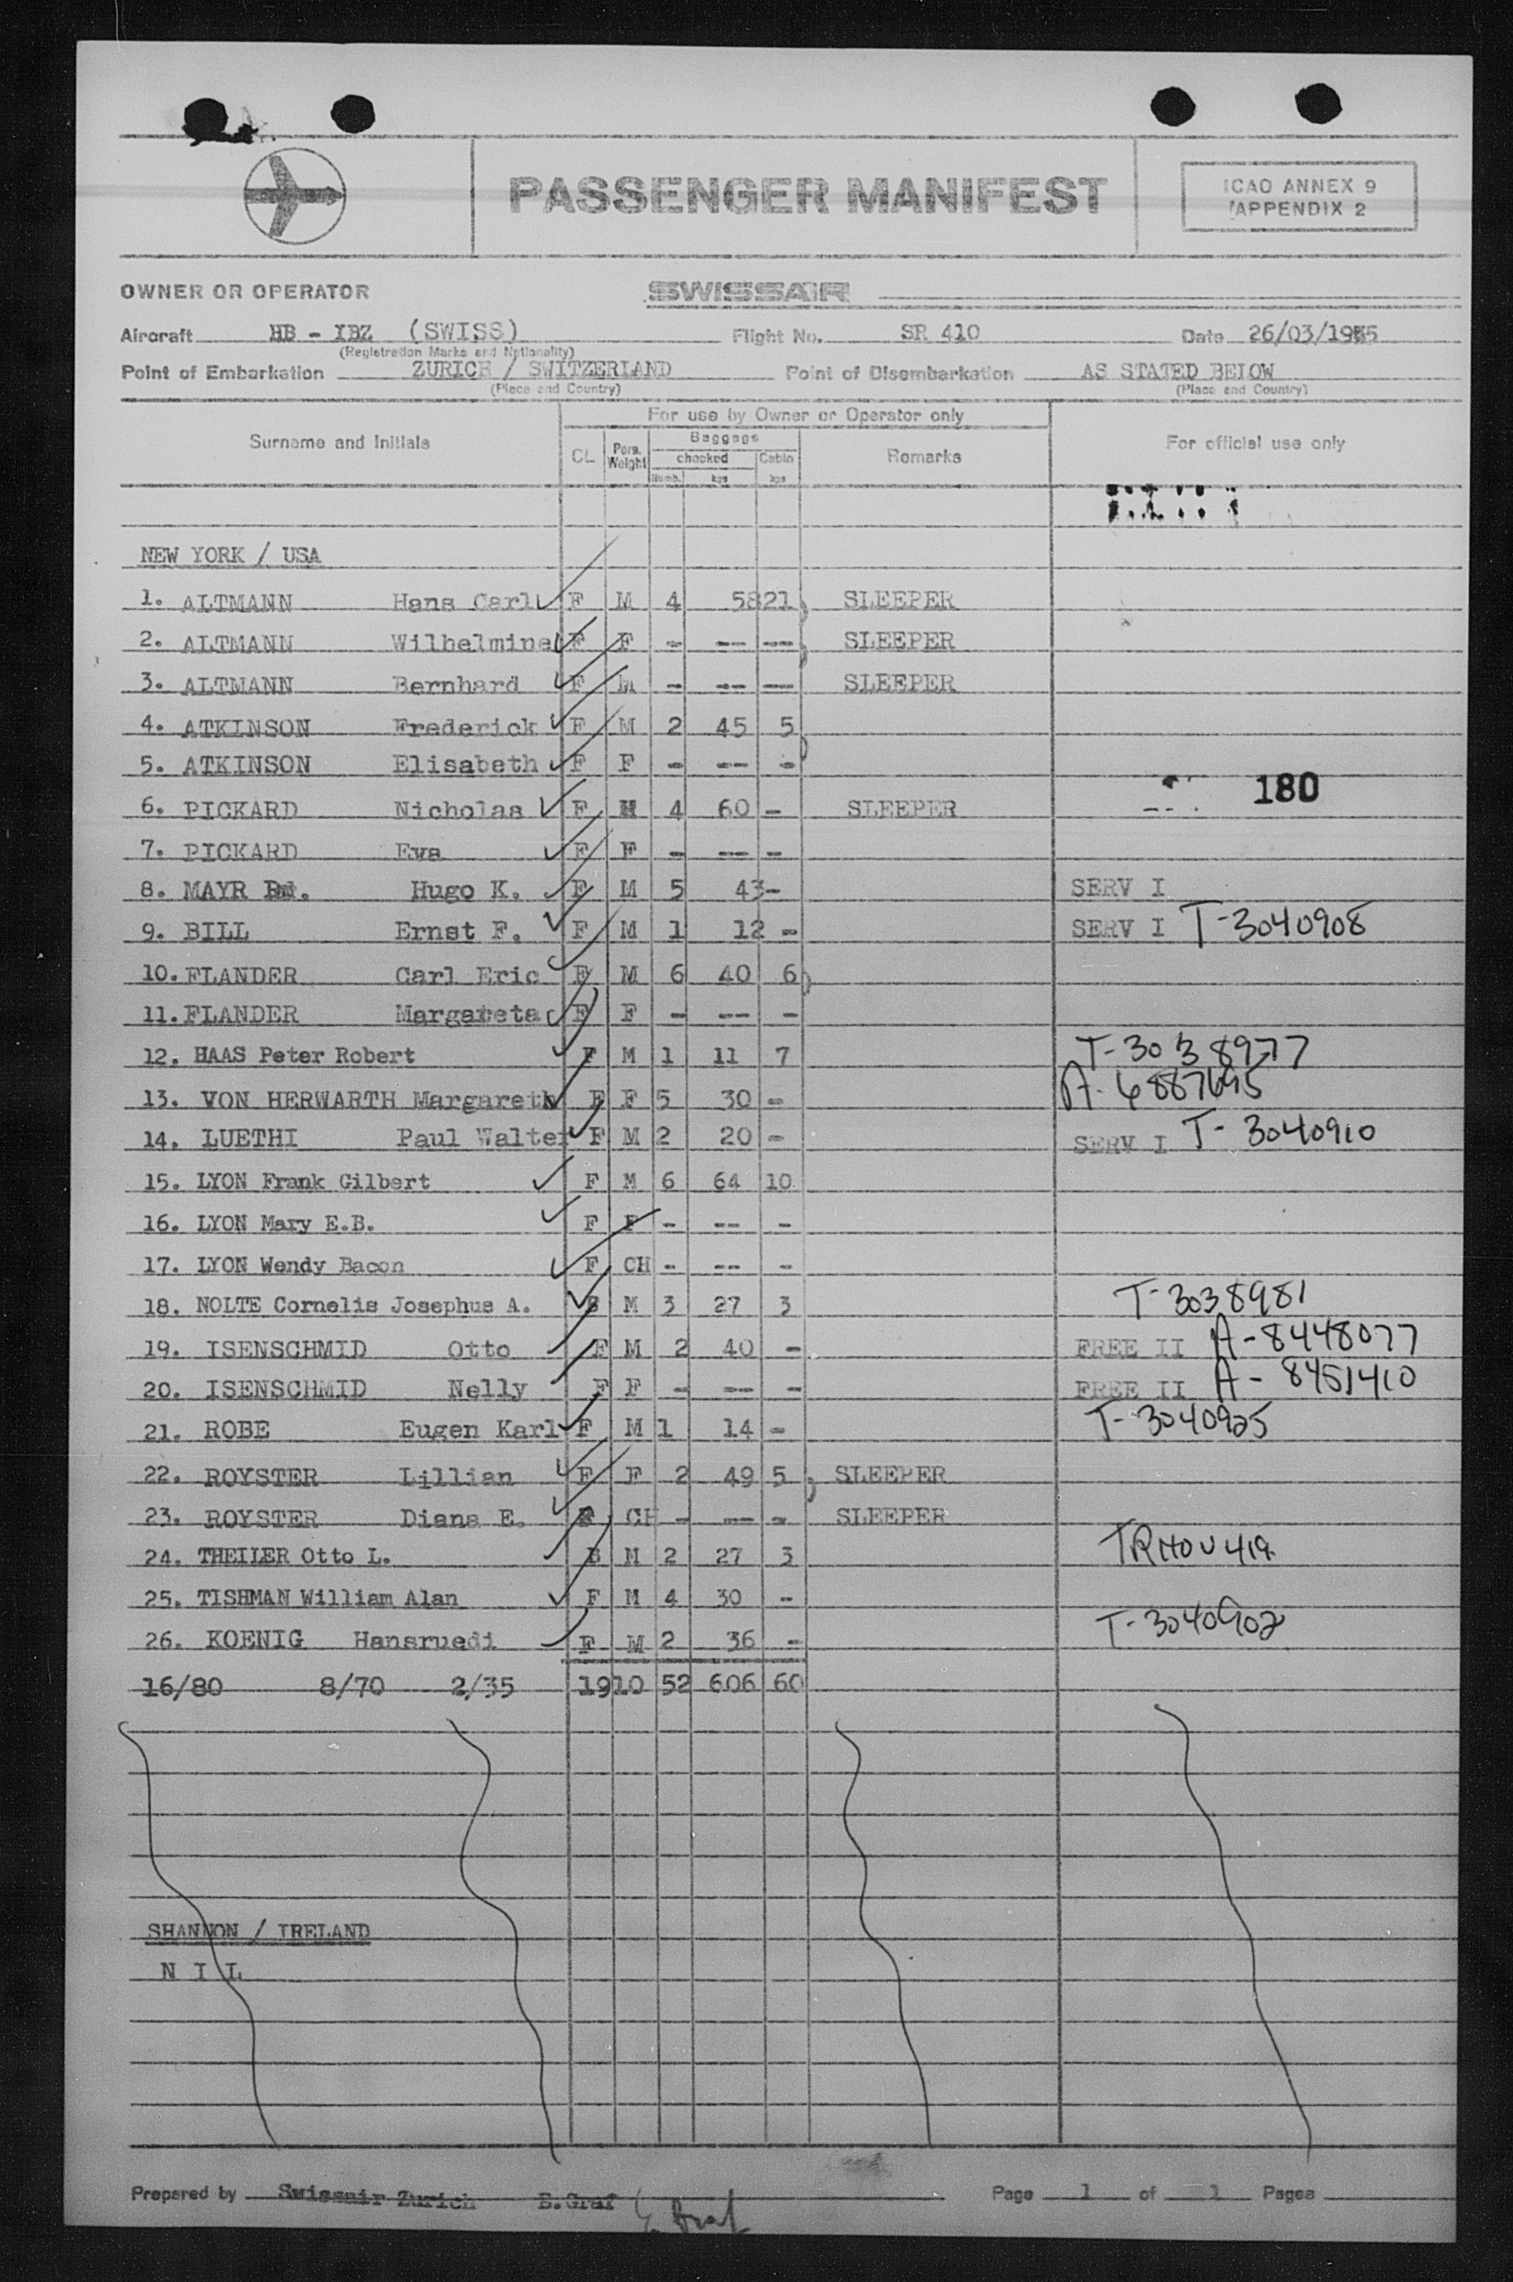 PASSENGER MANIFEST
ICAO ANNEX 9
APPENDIX 2
OWNER OR OPERATOR SWISSAIR
Aircraft HB - IBZ (SWISS) Flight No. SR 410 Date 26/03/1955
(Registration Marks and Nationality)
Point of Embarkation ZURICH / SWITZERLAND Point of Disembarkation AS STATED BELOW
(Place and Country) (Place and Country)
For use by Owner or Operator only
Surname and Initials CL. Pers. Weight Baggage checked Numb. kgs Cabin kgs Remarks For official use only
NEW YORK / USA
1. ALTMANN Hans Carl F M 4 58 21 SLEEPER
2. ALTMANN Wilhelmine F F - -- -- SLEEPER
3. ALTMANN Bernhard F M - -- -- SLEEPER
4. ATKINSON Frederick F M 2 45 5
5. ATKINSON Elisabeth F F - -- -
180
6. PICKARD Nicholas F M 4 60 - SLEEPER
7. PICKARD Eva F F - -- -
8. MAYR Hugo K. F M 5 43 - SERV I
9. BILL Ernst F. F M 1 12 - SERV I T-3040908
10. FLANDER Carl Eric F M 6 40 6
11. FLANDER Margareta F F - -- -
12. HAAS Peter Robert F M 1 11 7 T-3038977
13. VON HERWARTH Margareth F F 5 30 - A-6887695
14. LUETHI Paul Walter F M 2 20 - SERV I T-3040910
15. LYON Frank Gilbert F M 6 64 10
16. LYON Mary E.B. F F - -- -
17. LYON Wendy Bacon F CH - -- -
18. NOLTE Cornelis Josephus A. M 3 27 3 T-3038981
19. ISENSCHMID Otto F M 2 40 - FREE II A-8448077
20. ISENSCHMID Nelly F F - -- - FREE II A-8451410
21. ROBE Eugen Karl F M 1 14 - T-3040925
22. ROYSTER Lillian F F 2 49 5 SLEEPER
23. ROYSTER Diana E. CH - -- - SLEEPER
24. THEILER Otto L. B M 2 27 3
25. TISHMAN William Alan F M 4 30 -
26. KOENIG Hansruedi F M 2 36 - T-3040902
16/80 8/70 2/35 1910 52 606 60
SHANNON / IRELAND
N I L
Prepared by Swissair Zurich E.Graf E. Graf Page 1 of 1 Pages